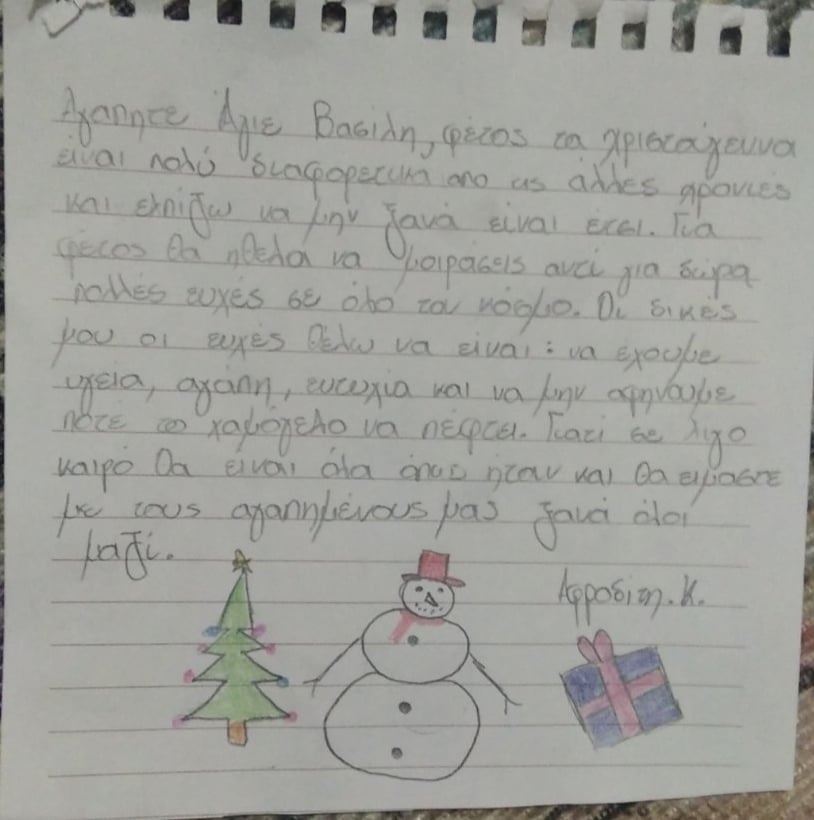 Αγαπητέ Άγιε Βασίλη, φέτος τα χριστούγεννα
είναι πολύ διαφορετικά απο τις άλλες χρονιές
και ελπίζω να μην ξανά είναι έτσι. Για
φέτος θα ηθελα να μοιράσεις αντί για δώρα
πολλές ευχές σε όλο τον κόσμο. Οι δικές
μου οι ευχές θέλω να είναι: να έχουμε
υγεία, αγάπη, ευτυχία και να μην αφήνουμε
ποτέ το χαμόγελο να πέφτει. Γιατί σε λίγο
καιρό θα είναι όλα όπως ήταν και θα είμαστε
με τους αγαπημένους μας ξανά όλοι
μαζί.
Αφροδίτη. Κ.